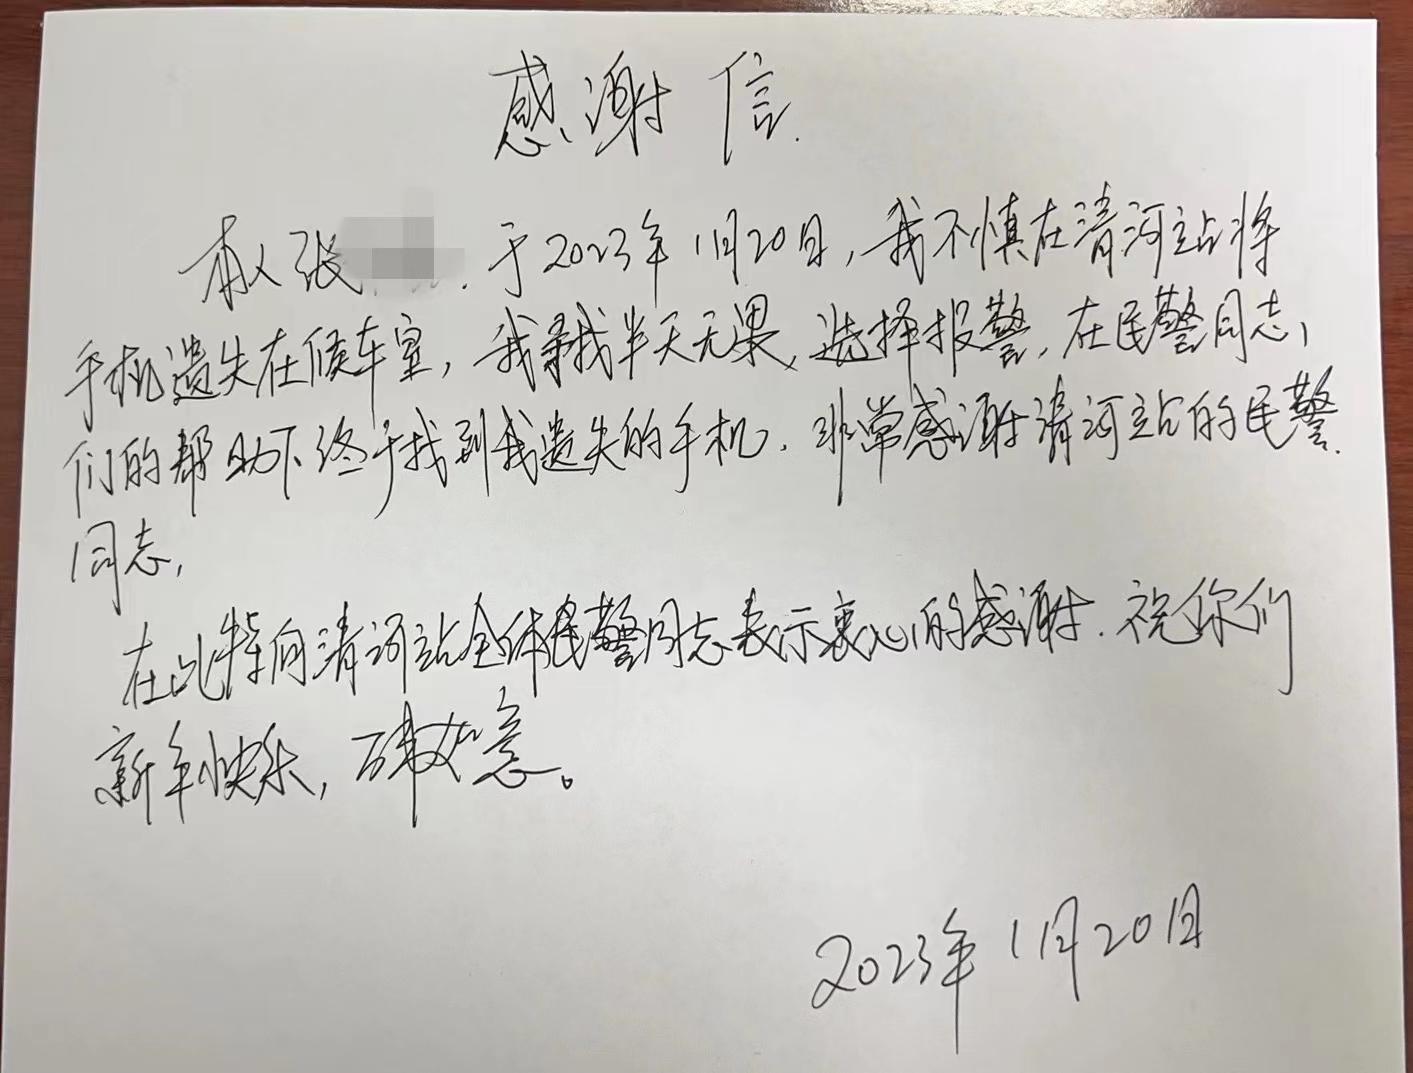 感谢信
本人张 于2023年1月20日,我不慎在清河站将
手机遗失在候车室,我寻找半天无果、选择报警,在民警同志
们的帮助下终于找到我遗失的手机.非常感谢清河站的民警
同志,
在此特向清河站全体民警同志表示衷心的感谢.祝你们
新年快乐,万事如意。
2023年1月20日